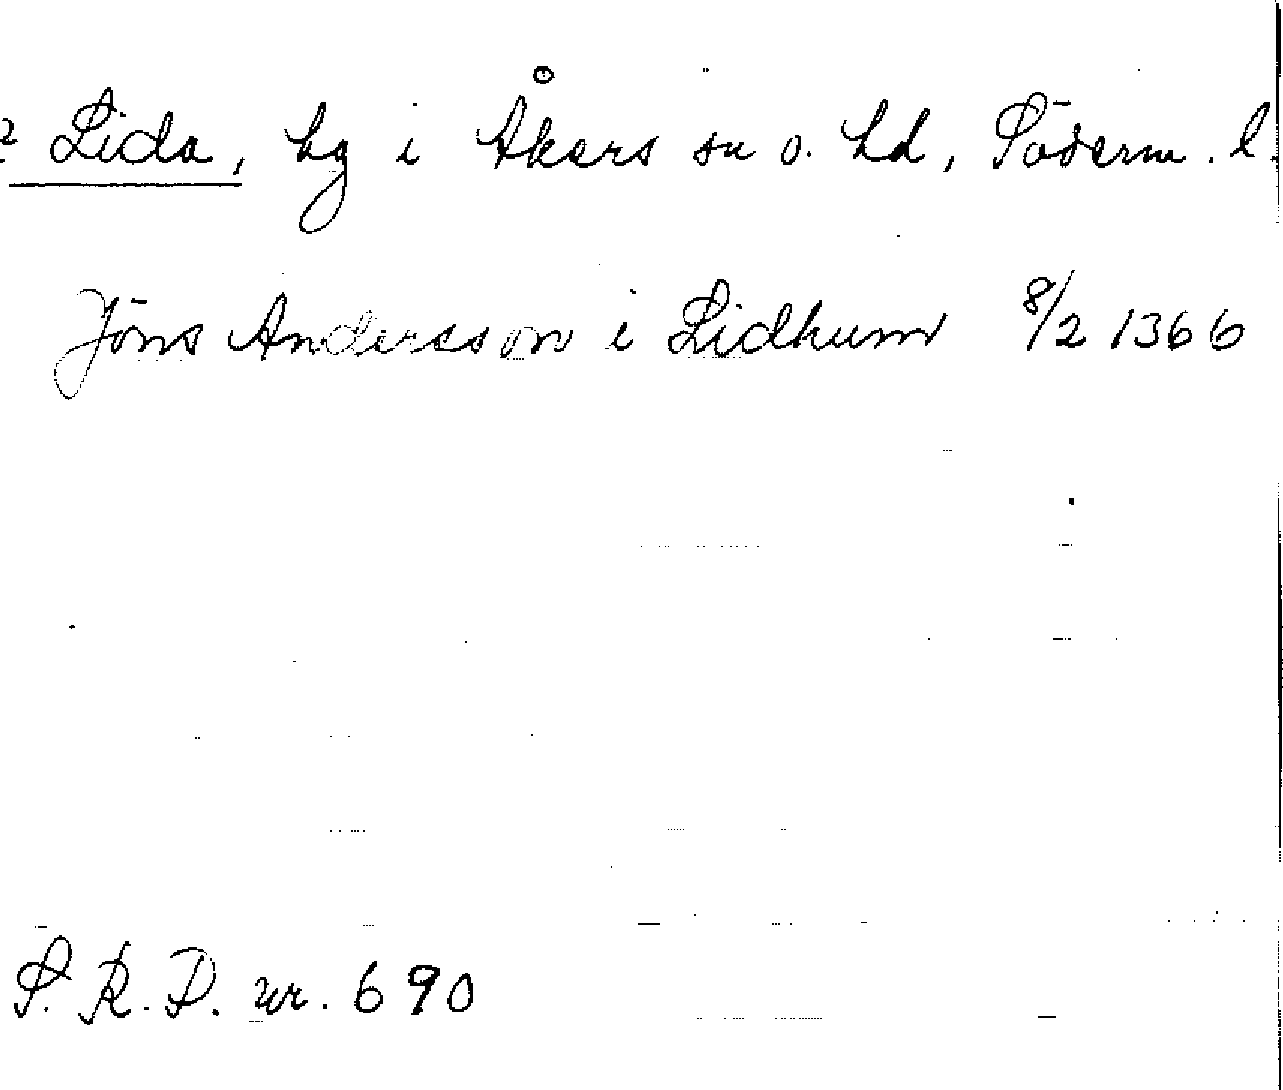 ? Lida, hg i Åkers sn o. hd, Söderm. l.
Jöns Andersson i Lidhum 8/2 1366
S. R. P. nr. 690